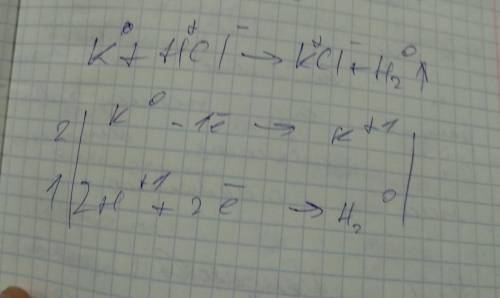 K⁰ + H⁺Cl⁻ → K⁺Cl⁻ + H₂⁰↑
2 | K⁰ - 1ē → K⁺¹ |
1 | 2H⁺¹ + 2ē → H₂⁰ |